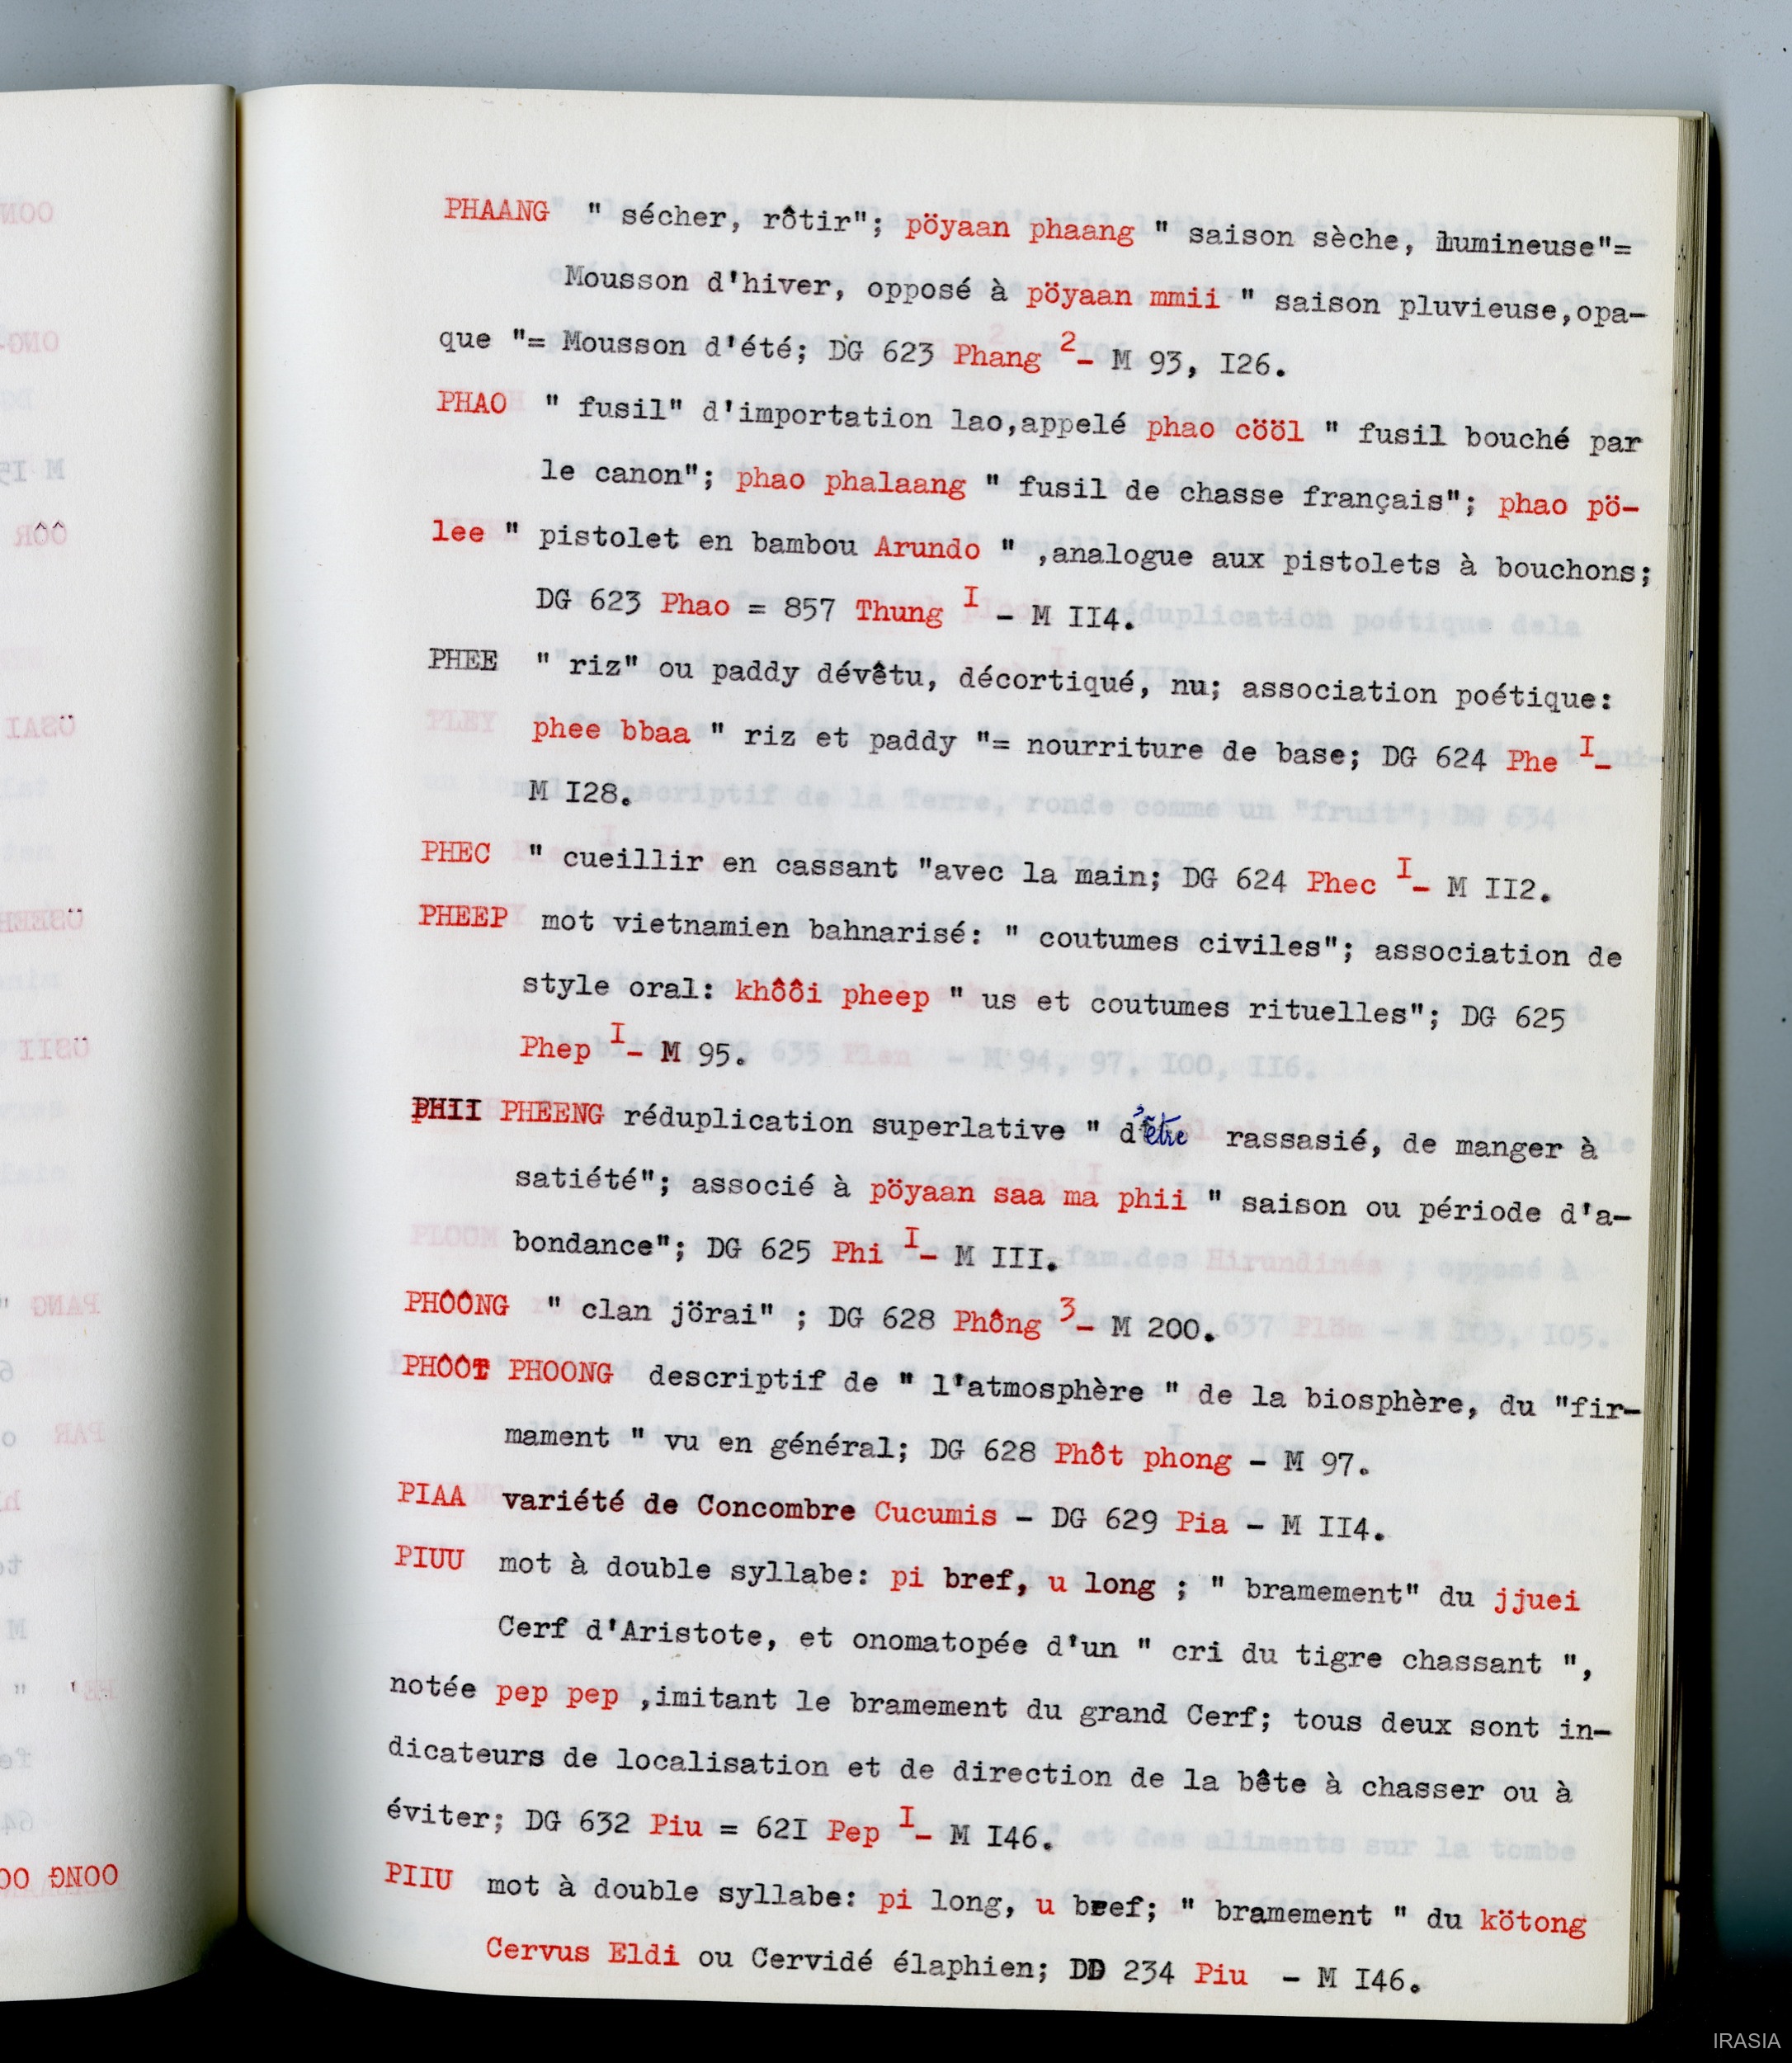 PHAANG " sécher, rôtir"; pöyaan phaang " saison sèche, lumineuse"=
Mousson d'hiver, opposé à pöyaan mmii " saison pluvieuse,opa-
que "= Mousson d'été; DG 623 Phang 2- M 93, I26.
PHAO " fusil" d'importation lao,appelé phao cööl " fusil bouché par
le canon"; phao phalaang " fusil de chasse français"; phao pö-
lee " pistolet en bambou Arundo " ,analogue aux pistolets à bouchons;
DG 623 Phao = 857 Thung I - M II4.
PHEE " riz" ou paddy dévêtu, décortiqué, nu; association poétique:
phee bbaa " riz et paddy "= nourriture de base; DG 624 Phe I-
M I28.
PHEC " cueillir en cassant "avec la main; DG 624 Phec I- M II2.
PHEEP mot vietnamien bahnarisé: " coutumes civiles"; association de
style oral: khôôi pheep " us et coutumes rituelles"; DG 625
Phep I- M 95.
PHII PHEENG réduplication superlative " d'être rassasié, de manger à
satiété"; associé à pöyaan saa ma phii " saison ou période d'a-
bondance"; DG 625 Phi I- M III.
PHÔÔNG " clan jörai" ; DG 628 Phông 3- M 200.
PHÔÔT PHOONG descriptif de " l'atmosphère " de la biosphère, du "fir-
mament " vu en général; DG 628 Phôt phong - M 97.
PIAA variété de Concombre Cucumis - DG 629 Pia - M II4.
PIUU mot à double syllabe: pi bref, u long ; " bramement" du jjuei
Cerf d'Aristote, et onomatopée d'un " cri du tigre chassant ",
notée pep pep ,imitant le bramement du grand Cerf; tous deux sont in-
dicateurs de localisation et de direction de la bête à chasser ou à
éviter; DG 632 Piu = 62I Pep I- M I46.
PIIU mot à double syllabe: pi long, u bref; " bramement " du kötong
Cervus Eldi ou Cervidé élaphien; DD 234 Piu - M I46.
IRASIA